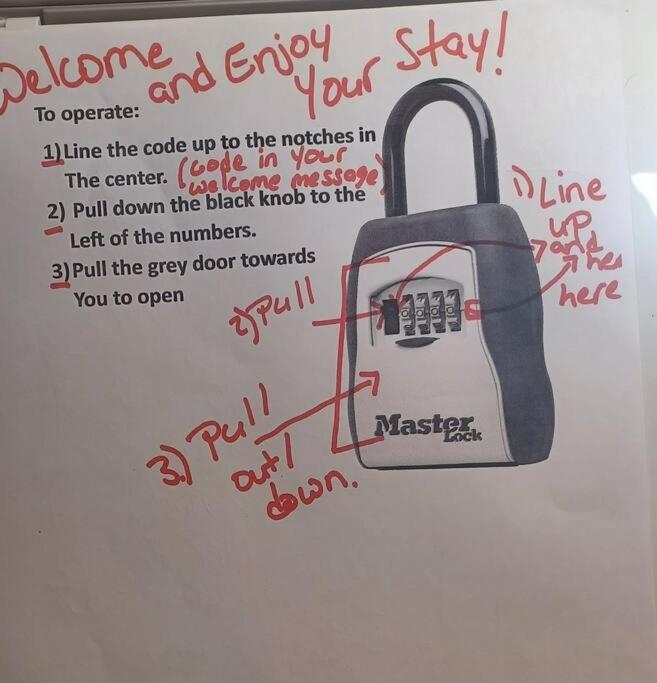 Welcome and Enjoy Your Stay!
To operate:
1) Line the code up to the notches in
The center. (Code in Your
welcome message)
2) Pull down the black knob to the
Left of the numbers.
3) Pull the grey door towards
You to open
1) Line
up
and
here
2) Pull
3.) Pull
out/
down.
Master
Lock